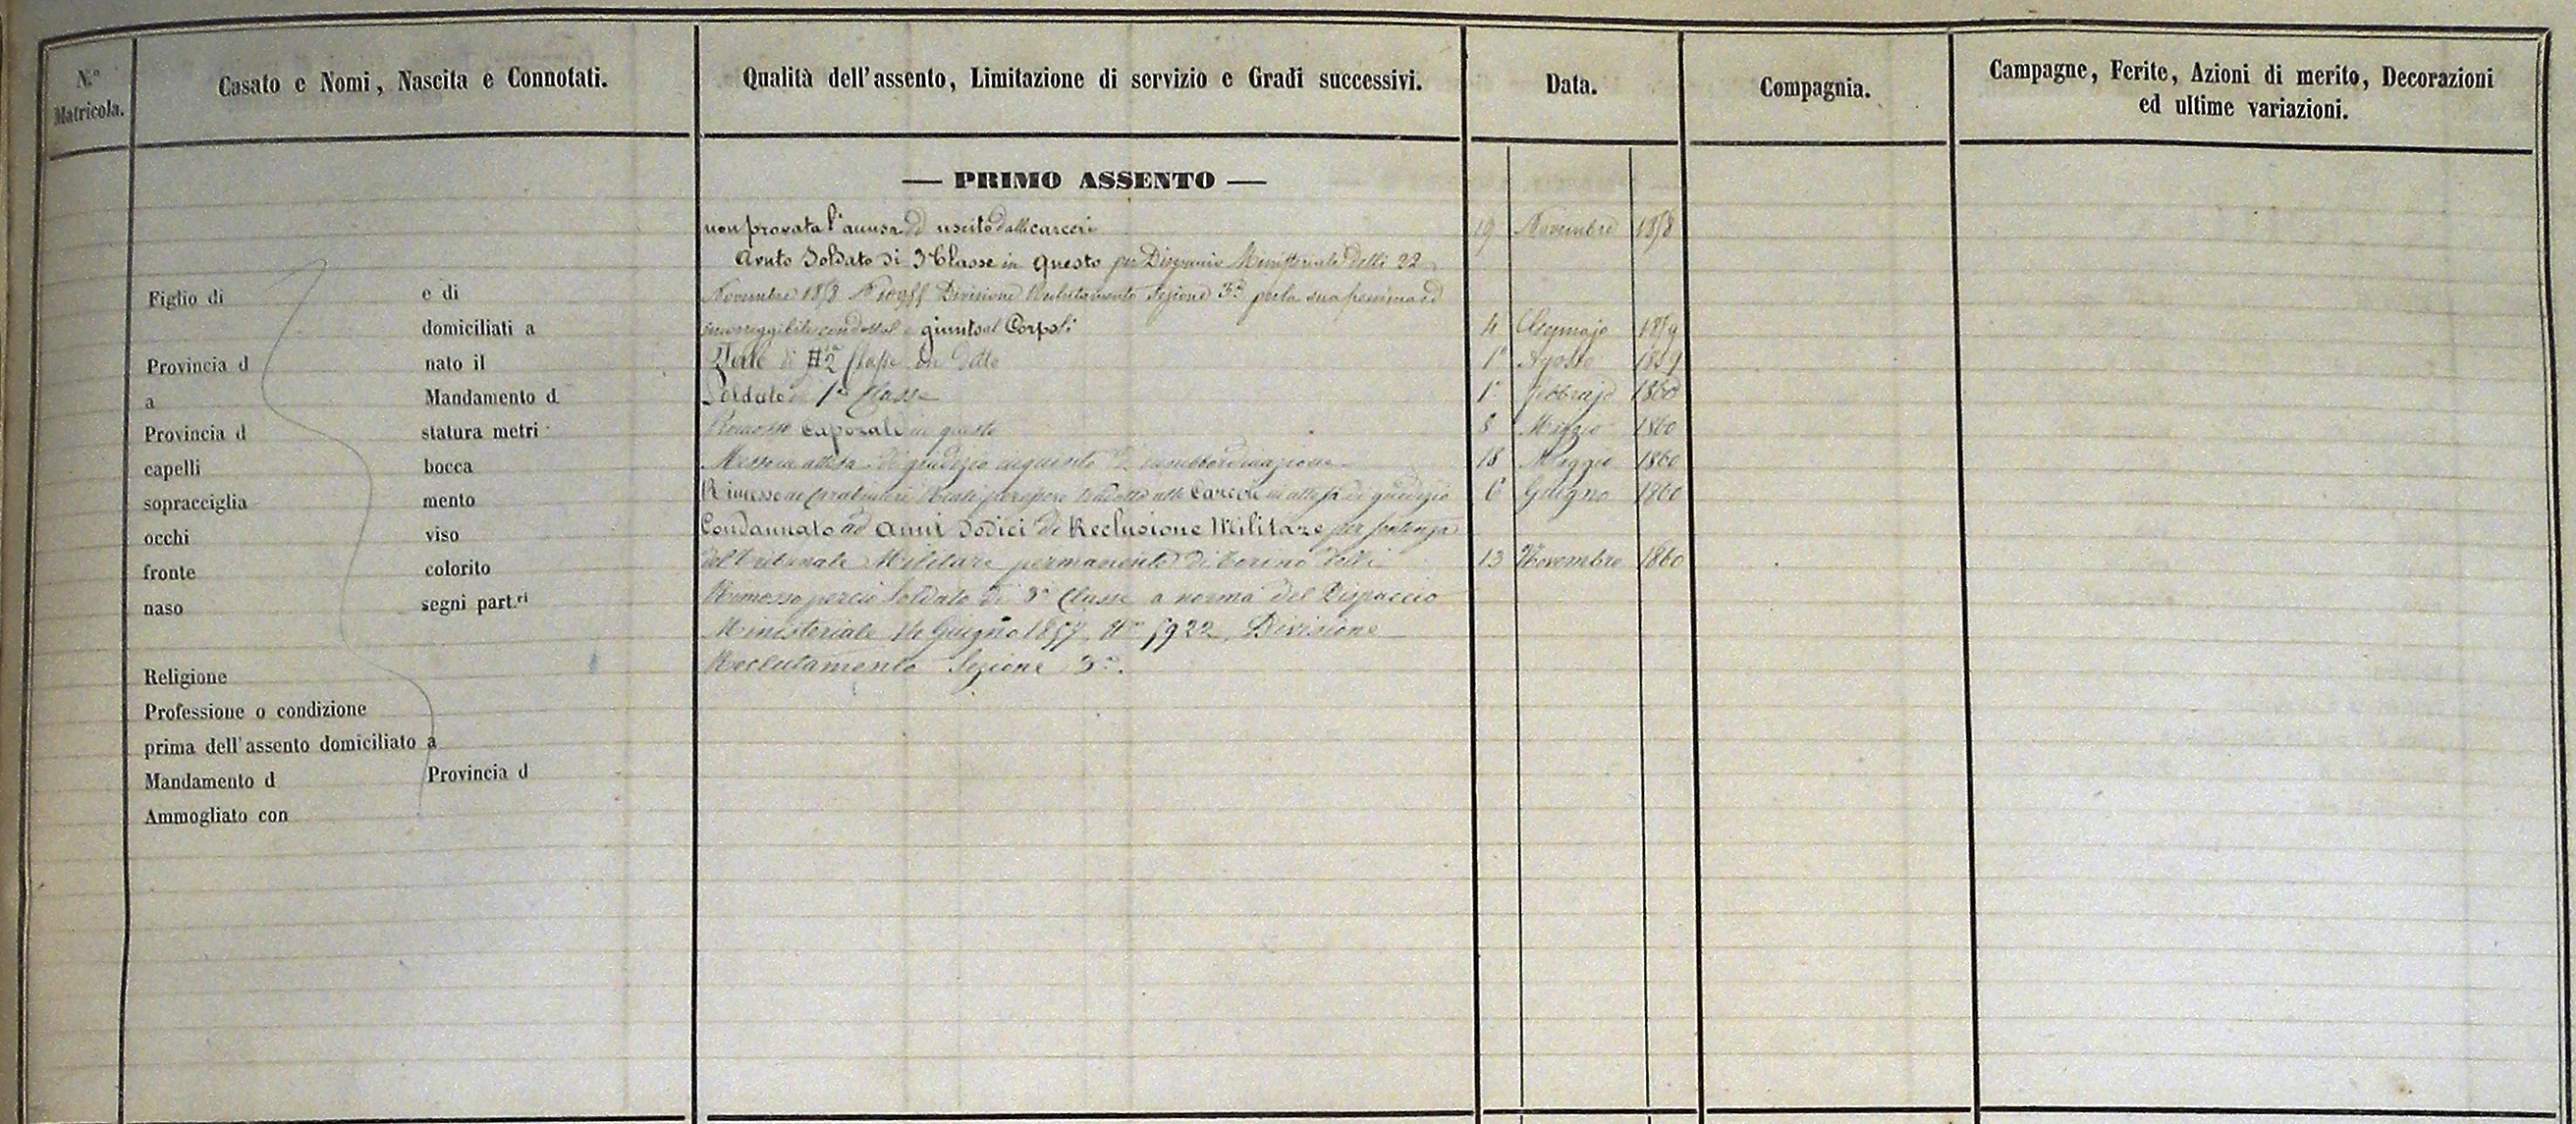 N.º Matricola.
Casato e Nomi, Nascita e Connotati.
Qualità dell'assento, Limitazione di servizio e Gradi successivi.
Data.
Compagnia.
Campagne, Ferite, Azioni di merito, Decorazioni
ed ultime variazioni.
— PRIMO ASSENTO —
non provata l'accusa ed uscito dalle carceri 19 Novembre 1858
Avuto Soldato di 3ª Classe in questo per Dispaccio Ministeriale delli 22
Novembre 1858 Nº 10955 Divisione Reclutamento Sezione 3ª per la sua pessima ed
incorreggibile condotta e giunto al Corpo li 4 Gennajo 1859
Tale di 2ª Classe in detto 1º Agosto 1859
Soldato di 1ª Classe 1º Febbrajo 1860
Caporale in questo 8 Maggio 1860
Messo in attesa di giudizio inquisito di insubordinazione 18 Maggio 1860
Rimesso ai Carabinieri Reali per essere tradotto alle Carceri in attesa di giudizio 6 Giugno 1860
Condannato ad anni dodici di Reclusione Militare per sentenza
del Tribunale Militare permanente di Torino delli 13 Novembre 1860
Rimosso perciò Soldato di 3ª Classe a norma del Dispaccio
Ministeriale 14 Giugno 1857 Nº 5922, Divisione
Reclutamento Sezione 3ª.
Figlio di e di
domiciliati a
Provincia d nato il
a Mandamento d
Provincia d statura metri
capelli bocca
sopracciglia mento
occhi viso
fronte colorito
naso segni part.ri
Religione
Professione o condizione
prima dell'assento domiciliato a
Mandamento d Provincia d
Ammogliato con